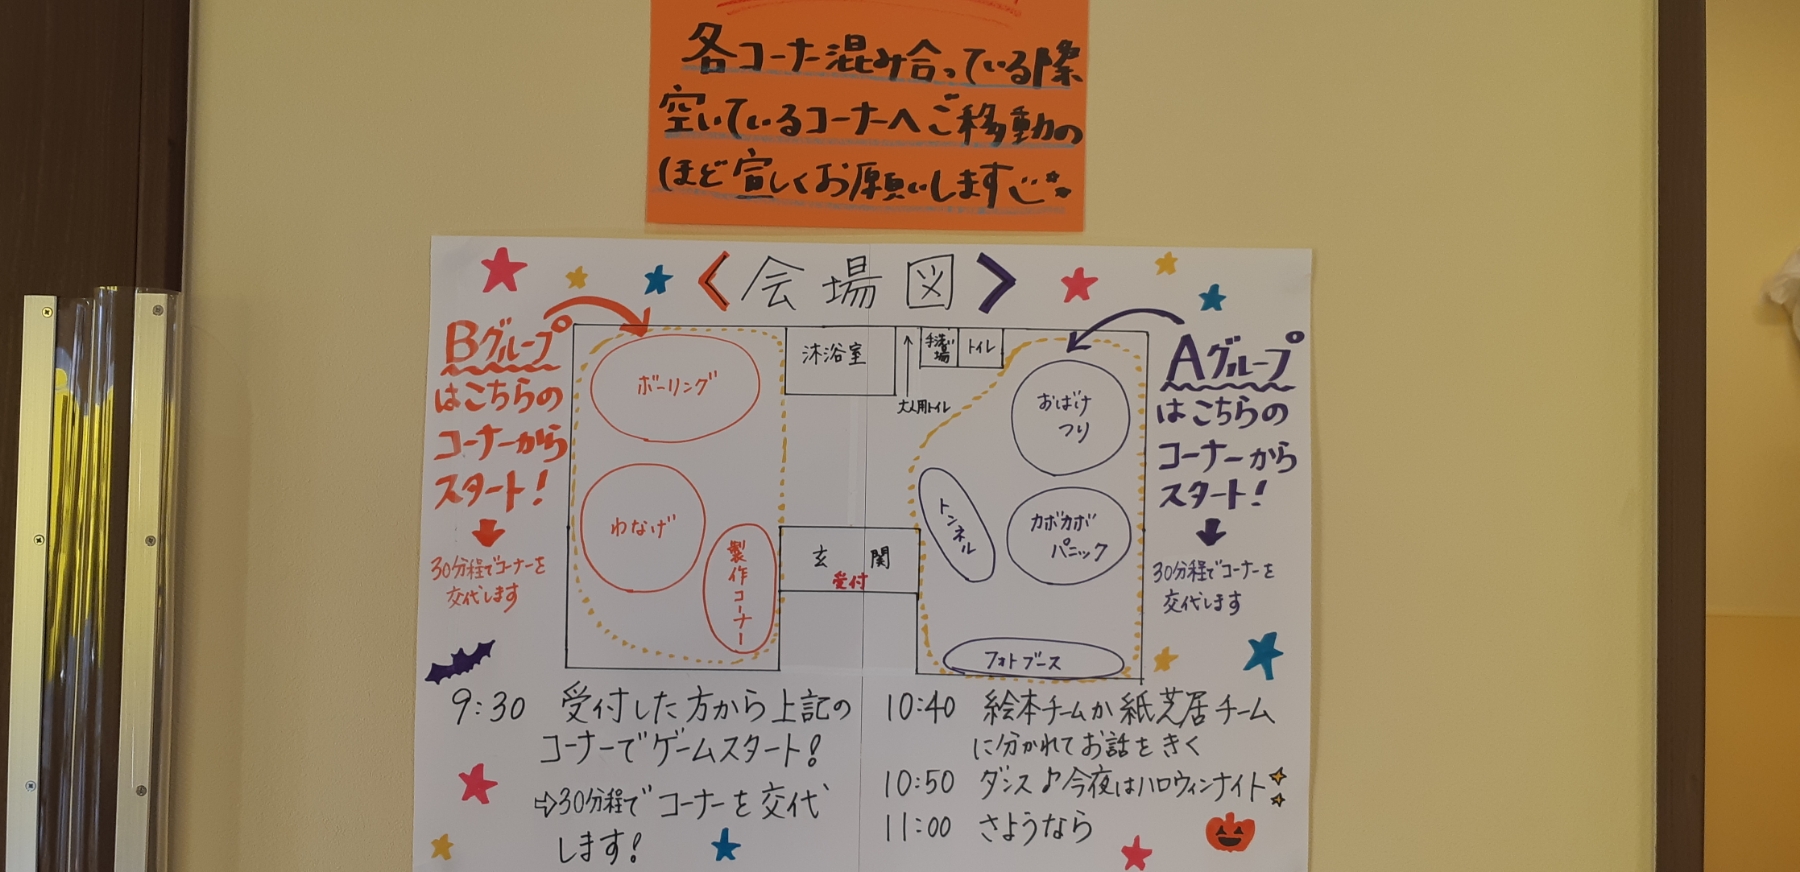 各コーナー混み合っている際
空いているコーナーへご移動の
ほど宜しくお願いします
<会場図>
Bグループ
はこちらの
コーナーから
スタート!
30分程でコーナーを
交代します
ボーリング
わなげ
製作コーナー
沐浴室
大人用トイレ
手洗い場
トイレ
玄関
受付
おばけ
つり
トンネル
カボカボ
パニック
フォトブース
Aグループ
はこちらの
コーナーから
スタート!
30分程でコーナーを
交代します
9:30 受付した方から上記の
コーナーでゲームスタート!
⇨30分程でコーナーを交代
します!
10:40 絵本チームか紙芝居チーム
に分かれてお話をきく
10:50 ダンス♪今夜はハロウィンナイト
11:00 さようなら